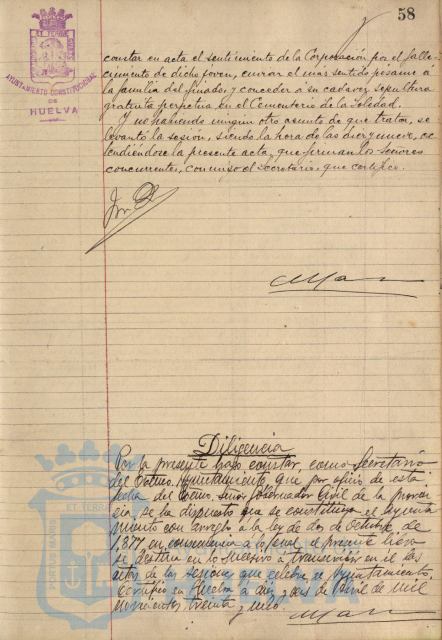 58
AYUNTAMIENTO CONSTITUCIONAL
DE
HUELVA
constar en acta el sentimiento de la Corporación por el falle-
cimiento de dicho joven, enviar el más sentido pésame á
la familia del finado, y conceder á su cadáver sepultura
gratuita perpetua en el Cementerio de la Soledad.
Y no habiendo ningun otro asunto de que tratar, se
levantó la sesión, siendo la hora de las diez y nueve, ex-
tendiéndose la presente acta, que firman los señores
concurrentes, conmigo el Secretario, que certifico.
Diligencia
Por la presente hago constar, como Secretario
del Excmo. Ayuntamiento, que por oficio de esta
fecha del Excmo. Señor Gobernador Civil de la provin
cia, se ha dispuesto que se constituya el Ayunta
miento con arreglo a la ley de dos de Octubre de
1,877 en consecuencia a lo cual el presente libro
se destina en lo sucesivo á transcribir en él las
actas de las sesiones que celebre el Ayuntamiento,
Certifico en Huelva a diez y seis de Abril de mil
novecientos treinta y uno.
PORTUS MARIS
ET TERRAE